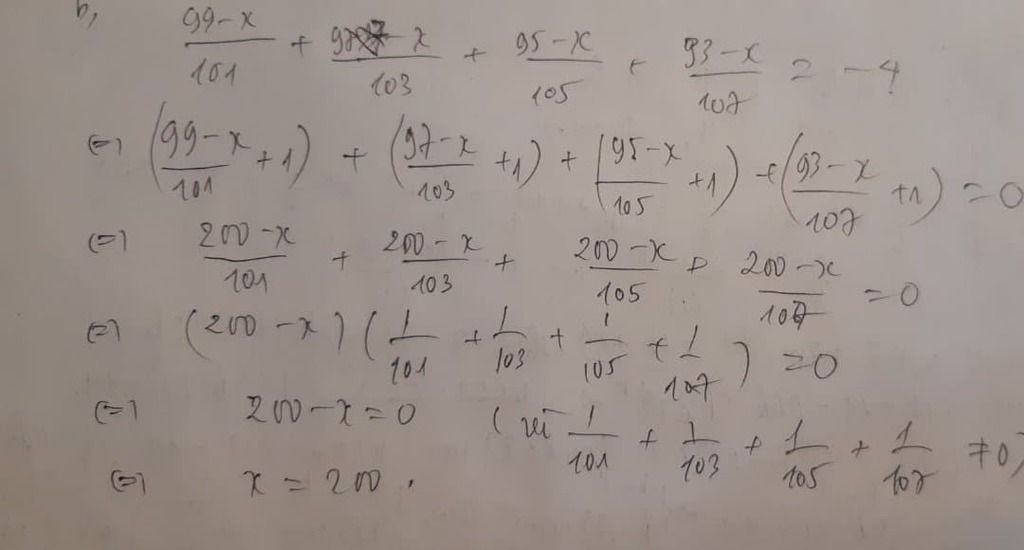 b,
99-x/101 + 97-x/103 + 95-x/105 + 93-x/107 = -4
(=) (99-x/101 +1) + (97-x/103 +1) + (95-x/105 +1) + (93-x/107 +1) = 0
(=) 200-x/101 + 200-x/103 + 200-x/105 + 200-x/107 = 0
(=) (200-x)(1/101 + 1/103 + 1/105 + 1/107) = 0
(=) 200-x=0 (vì 1/101 + 1/103 + 1/105 + 1/107 ≠0)
(=) x = 200.